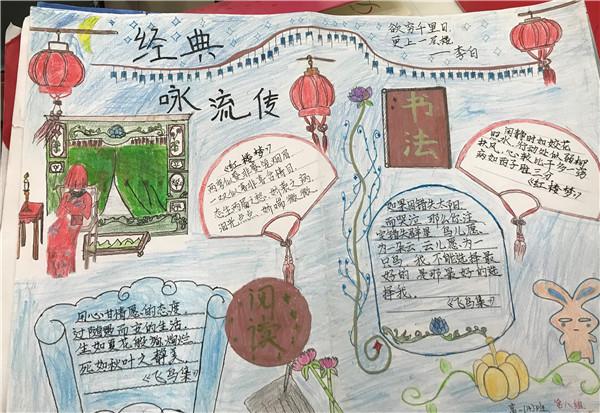 经典
咏流传
欲穷千里目,
更上一层楼
——李白
书法
《红楼梦》
两弯似蹙非蹙罥烟眉,
一双似喜非喜含情目。
态生两靥之愁,娇袭一身之病。
泪光点点,娇喘微微。
闲静时如姣花
照水,行动处似弱柳
扶风,心较比干多一窍
病如西子胜三分。
《红楼梦》
如果因错失太阳
而哭泣,那么你注
定错失群星。鸟儿愿
为一朵云,云儿愿为一
只鸟。我不能选择最
好的,是那最好的选
择我。
《飞鸟集》
阅读
用心甘情愿的态度,
过随遇而安的生活。
生如夏花般绚烂
死如秋叶之静美
《飞鸟集》
第八组